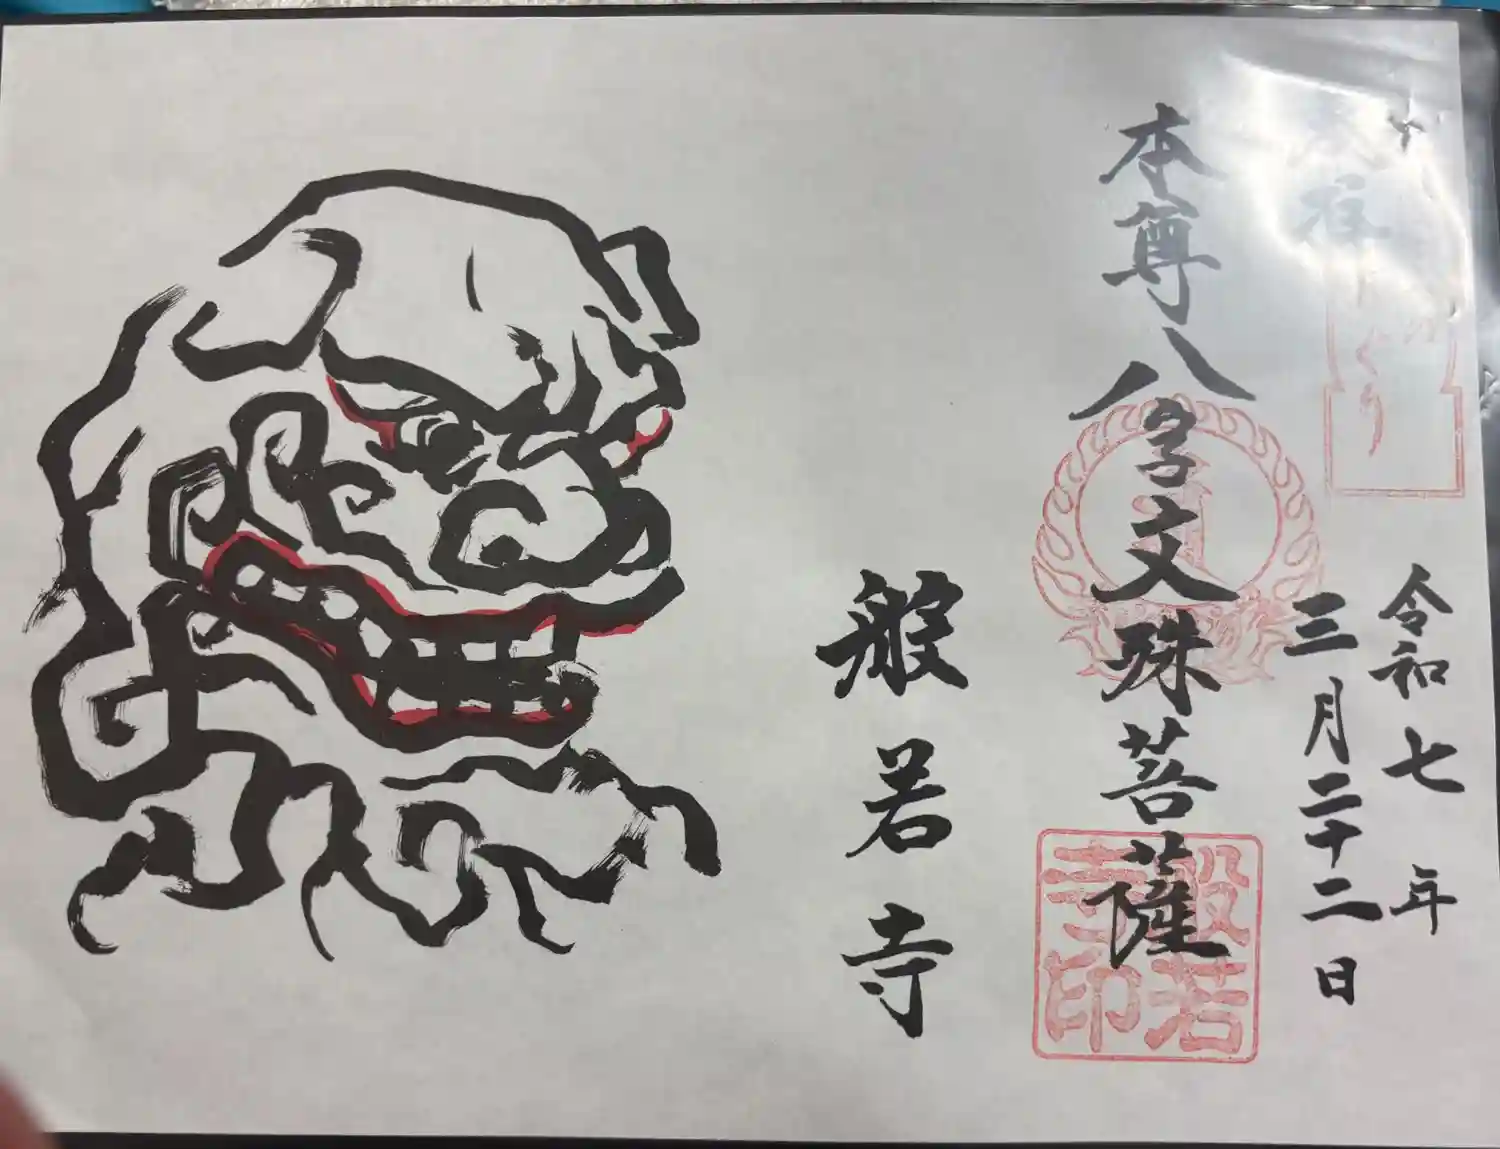 奉拝
令和七年
三月二十二日
本尊八字文殊菩薩
般若寺印
般若寺